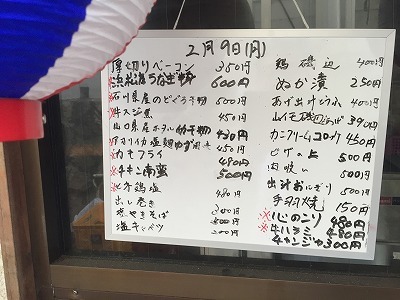 2月9日(月)
厚切りベーコン 350円
浜名湖うなぎ 600円
※石川県産のどぐろ干物
※牛スジ煮 450円
山口県産ホタルイカ干物 430円
450円
※カキフライ 480円
※チキン南蛮 500円
鶏塩 480円
出し巻き 300円
焼やきそば 500円
塩キャベツ 200円
鶏磯辺 400円
ぬか漬 250円
あげ出しとうふ 400円
山イモ磯辺あげ 390円
カニクリームコロッケ 450円
500円
肉吸い 500円
出汁おにぎり 500円
手羽焼 150円
※心のこり 480円
※牛ハラミ 480円
300円